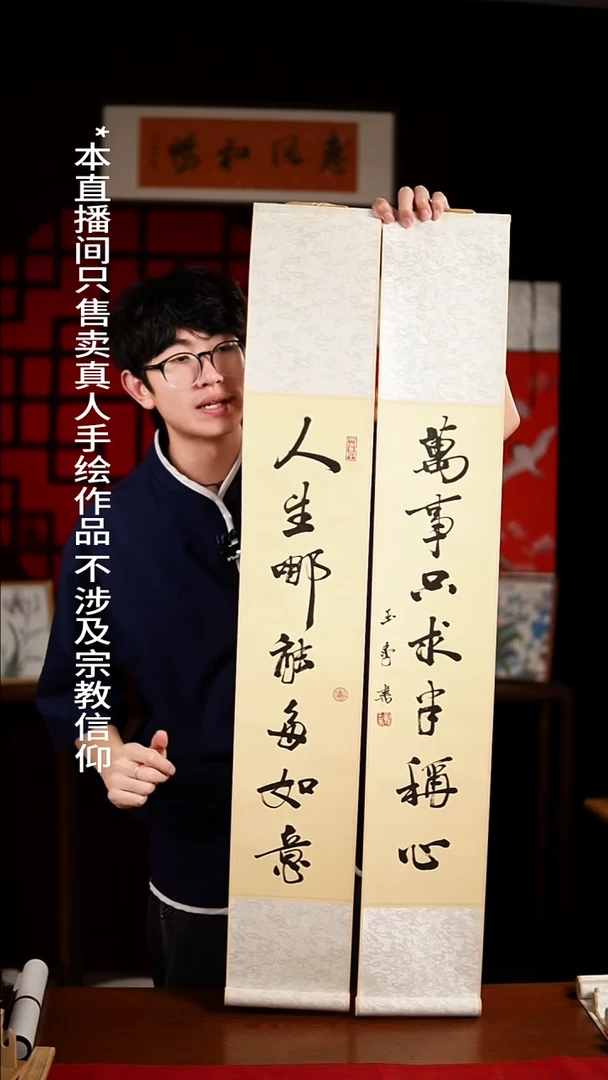 惠風和暢
*本直播间只售卖真人手绘作品 不涉及宗教信仰
人生哪能多如意
萬事只求半稱心